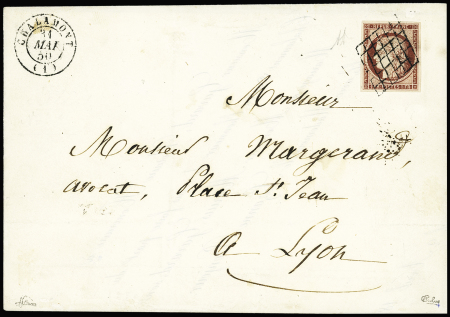 CHALAMONT
31
MAI
50
(1)
REPUB. FRANC.
Monsieur
Monsieur Margerand,
avocat, Place St. Jean
a Lyon